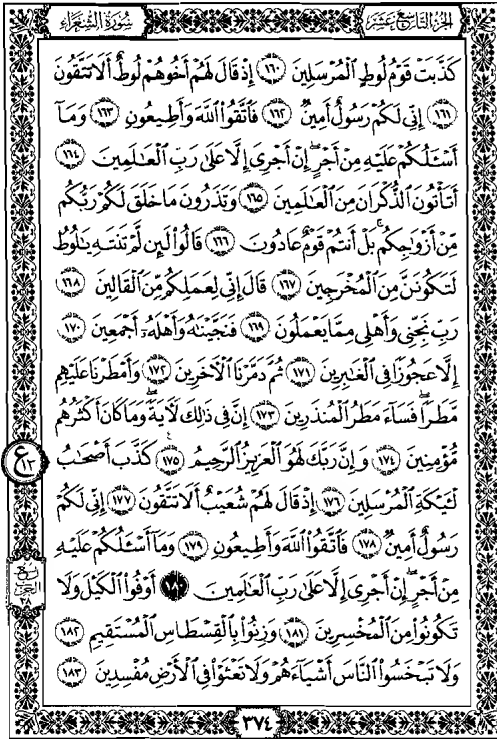 الجزء التاسع عشر
سورة الشعراء
كَذَّبَتْ قَوْمُ لُوطٍ ٱلْمُرْسَلِينَ ١٦٠ إِذْ قَالَ لَهُمْ أَخُوهُمْ لُوطٌ أَلَا تَتَّقُونَ
١٦١ إِنِّي لَكُمْ رَسُولٌ أَمِينٌ ١٦٢ فَٱتَّقُوا۟ ٱللَّهَ وَأَطِيعُونِ ١٦٣ وَمَآ
أَسْـَٔلُكُمْ عَلَيْهِ مِنْ أَجْرٍ ۖ إِنْ أَجْرِىَ إِلَّا عَلَىٰ رَبِّ ٱلْعَـٰلَمِينَ ١٦٤
أَتَأْتُونَ ٱلذُّكْرَانَ مِنَ ٱلْعَـٰلَمِينَ ١٦٥ وَتَذَرُونَ مَا خَلَقَ لَكُمْ رَبُّكُم
مِّنْ أَزْوَٰجِكُم ۚ بَلْ أَنتُمْ قَوْمٌ عَادُونَ ١٦٦ قَالُوا۟ لَئِن لَّمْ تَنتَهِ يَـٰلُوطُ
لَتَكُونَنَّ مِنَ ٱلْمُخْرَجِينَ ١٦٧ قَالَ إِنِّى لِعَمَلِكُم مِّنَ ٱلْقَالِينَ ١٦٨
رَبِّ نَجِّنِى وَأَهْلِى مِمَّا يَعْمَلُونَ ١٦٩ فَنَجَّيْنَـٰهُ وَأَهْلَهُۥٓ أَجْمَعِينَ ١٧٠
إِلَّا عَجُوزًا فِى ٱلْغَـٰبِرِينَ ١٧١ ثُمَّ دَمَّرْنَا ٱلْـَٔاخَرِينَ ١٧٢ وَأَمْطَرْنَا عَلَيْهِم
مَّطَرًا ۖ فَسَآءَ مَطَرُ ٱلْمُنذَرِينَ ١٧٣ إِنَّ فِى ذَٰلِكَ لَـَٔايَةً ۖ وَمَا كَانَ أَكْثَرُهُم
مُّؤْمِنِينَ ١٧٤ وَإِنَّ رَبَّكَ لَهُوَ ٱلْعَزِيزُ ٱلرَّحِيمُ ١٧٥ كَذَّبَ أَصْحَـٰبُ
لْـَٔيْكَةِ ٱلْمُرْسَلِينَ ١٧٦ إِذْ قَالَ لَهُمْ شُعَيْبٌ أَلَا تَتَّقُونَ ١٧٧ إِنِّى لَكُمْ
رَسُولٌ أَمِينٌ ١٧٨ فَٱتَّقُوا۟ ٱللَّهَ وَأَطِيعُونِ ١٧٩ وَمَآ أَسْـَٔلُكُمْ عَلَيْهِ
مِنْ أَجْرٍ ۖ إِنْ أَجْرِىَ إِلَّا عَلَىٰ رَبِّ ٱلْعَـٰلَمِينَ ١٨٠ أَوْفُوا۟ ٱلْكَيْلَ وَلَا
تَكُونُوا۟ مِنَ ٱلْمُخْسِرِينَ ١٨١ وَزِنُوا۟ بِٱلْقِسْطَاسِ ٱلْمُسْتَقِيمِ ١٨٢
وَلَا تَبْخَسُوا۟ ٱلنَّاسَ أَشْيَآءَهُمْ وَلَا تَعْثَوْا۟ فِى ٱلْأَرْضِ مُفْسِدِينَ ١٨٣
ع
١٣
ربع
الحزب
٣٨
٣٧٤